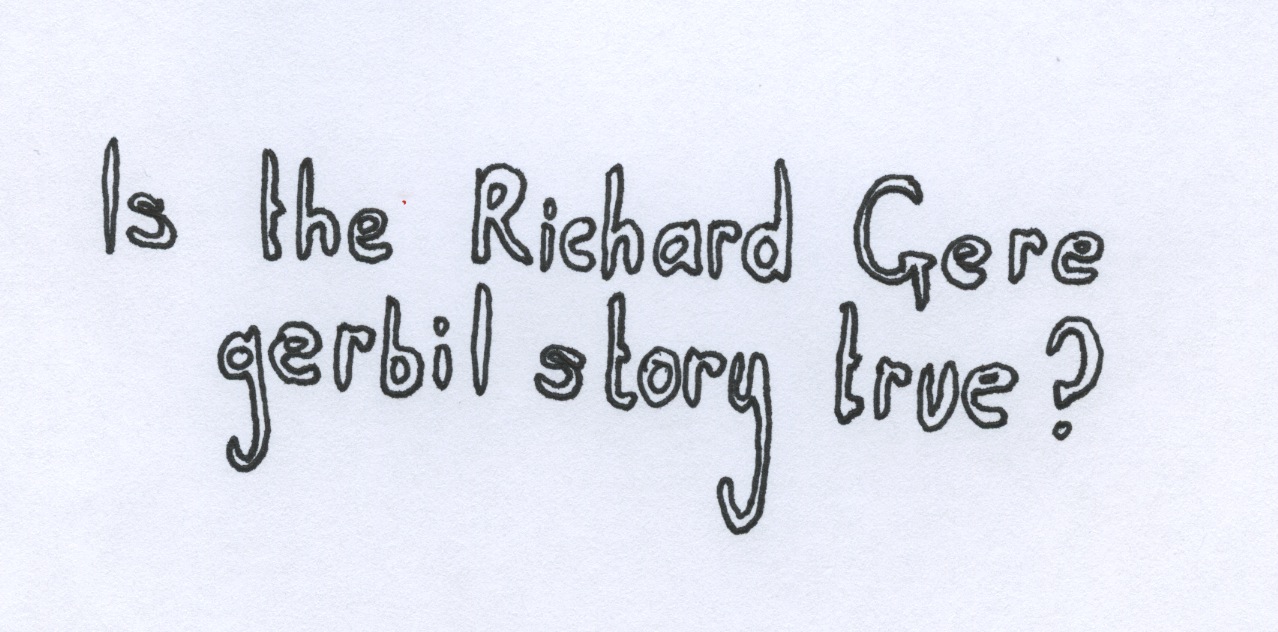 Is the Richard Gere
gerbil story true?